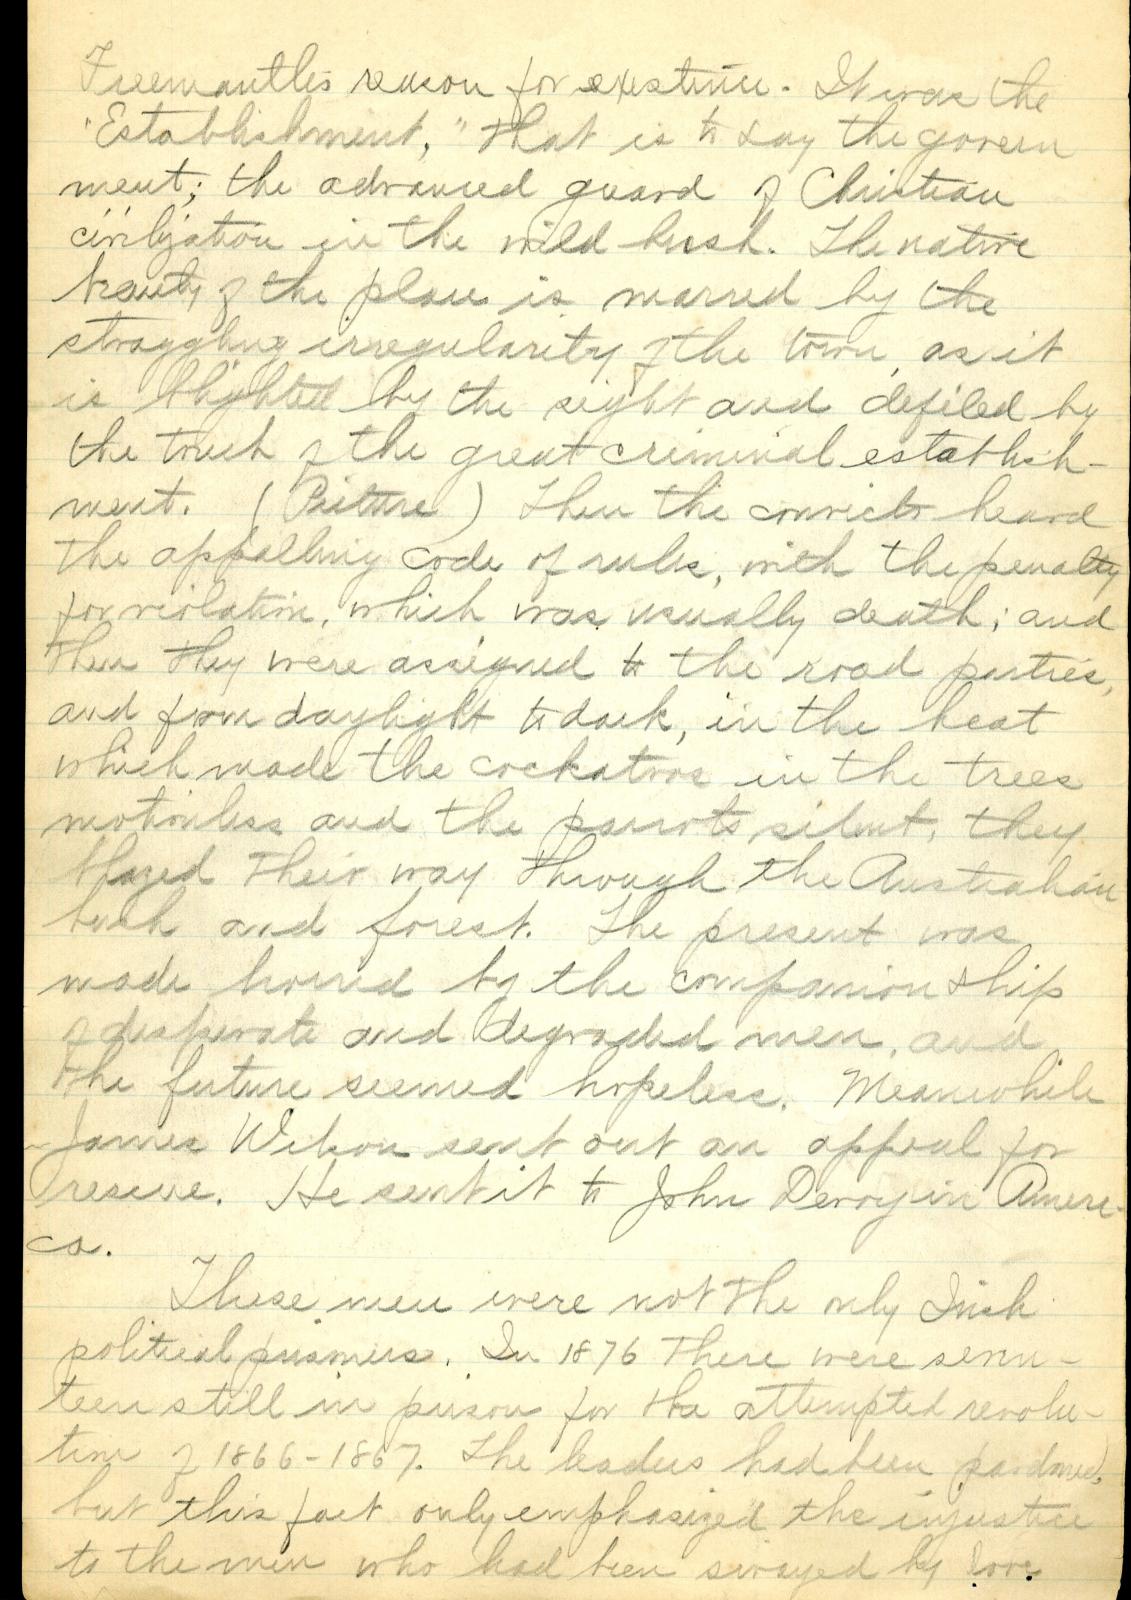 Freemantles reason for existence. It was the
"Establishment," that is to say the govern
ment; the advanced guard of Christian
civilization in the wild bush. The native
beauty of the place is marred by the
straggling irregularity of the town, as it
is blighted by the sight and defiled by
the touch of the great criminal establish-
ment. (Picture) Then the convicts heard
the appalling code of rules, with the penalty
for violation, which was usually death; and
then they were assigned to the road parties,
and from daylight to dark, in the heat
which made the cockatoos in the trees
motionless and the parrots silent, they
blazed their way through the Australian
bush and forest. The present was
made horrid by the companionship
of desperate and degraded men, and
the future seemed hopeless. Meanwhile
James Wilson sent out an appeal for
rescue. He sent it to John Devoy in Ameri-
ca.
These men were not the only Irish
political prisoners. In 1876 there were seven-
teen still in prison for the attempted revolu-
tion of 1866-1867. The leaders had been pardoned,
but this fact only emphasized the injustice
to the men who had been swayed by love